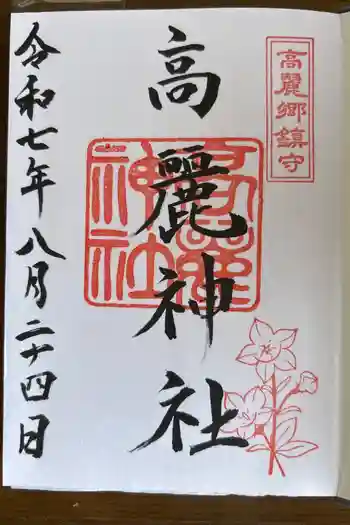 高麗郷鎮守
高麗神社
高麗神社
令和七年八月二十四日